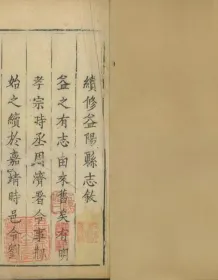 續修益陽縣志敘
益之有志由來舊矣有明
孝宗時丞周濟署令事賴
始之續於嘉靖時邑令劉